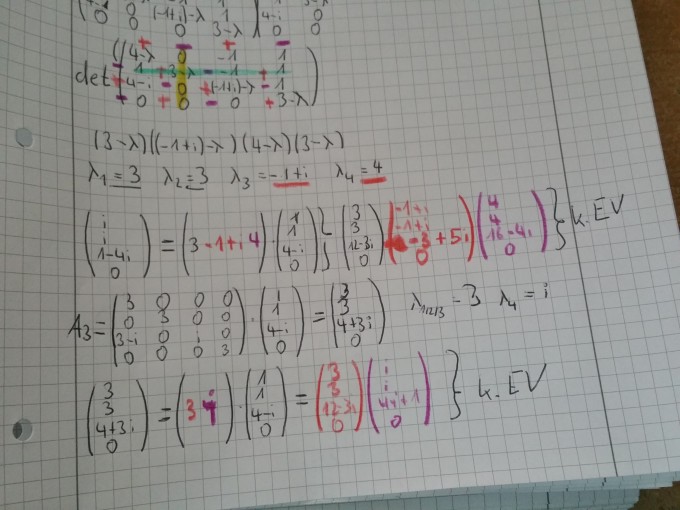 0 0 (-1+i)-λ 1 | 4-i 0
0 0 0 3-λ | 0 0
det ( 4-λ 0 -1 1
1 3-λ -1 1
4-i 0 (-1+i)-λ 1
0 0 0 3-λ )
(3-λ)((-1+i)-λ)(4-λ)(3-λ)
λ₁=3 λ₂=3 λ₃=-1+i λ₄=4
(i, i, 1-4i, 0) = (3 -1+i 4) · (1, 1, 4-i, 0) { (3, 3, 12-3i, 0) (-1+i, -1+i, -3+5i, 0) (4, 4, 16-4i, 0) } k. EV
A₃ = (3 0 0 0
0 3 0 0
3-i 0 i 0
0 0 0 3) · (1, 1, 4-i, 0) = (3, 3, 4+3i, 0) λ₁/₂/₃ = 3 λ₄ = i
(3, 3, 4+3i, 0) = (3 i) · (1, 1, 4-i, 0) = (3, 3, 12-3i, 0) (i, i, 4i+1, 0) } k. EV